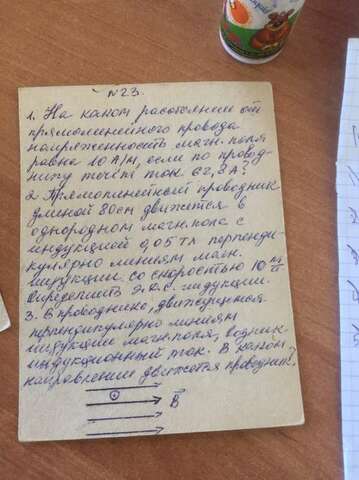 №23.
1. На каком расстоянии от
прямолинейного провода
напряженность магн. поля
равна 10 А/м, если по провод-
нику течёт ток 62,8 А?
2. Прямолинейный проводник
длиной 80см движется в
однородном магн. поле с
индукцией 0,05 Тл перпенди-
кулярно линиям магн.
индукции со скоростью 10 м/с
Определить э.д.с. индукции.
3. В проводнике, движущемся
перпендикулярно линиям
индукции магн. поля, возник
индукционный ток. В каком
направлении движется проводник?
B